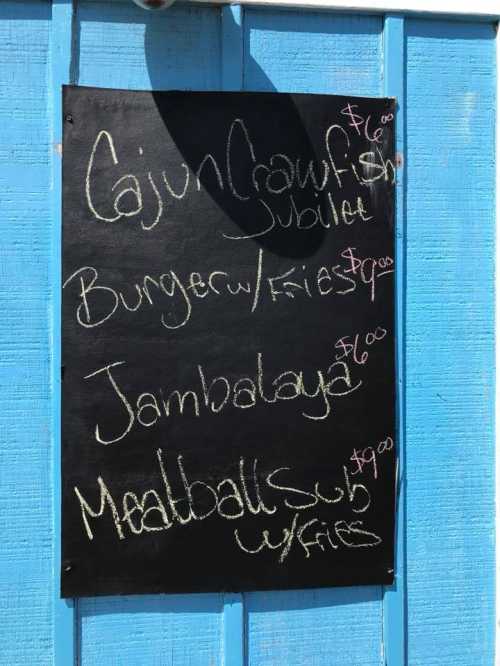 $6.00
Cajun Crawfish
Jubilee
Burger w/Fries $9.00
$6.00
Jambalaya
$9.00
Meatball Sub
w/Fries